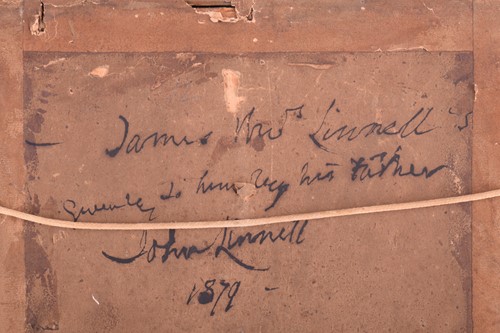 - James Thos Linnell's
given to him by his Father
John Linnell
1879 -